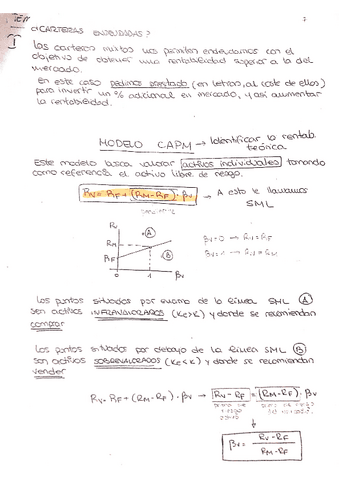 ¿CARTERAS ENDEUDADAS?
Las carteras mixtas nos permiten endeudarnos con el
objetivo de obtener una rentabilidad superior a la del
mercado.
En este caso pedimos prestado (en letras, al coste de ellas)
para invertir un % adicional en mercado, y así aumentar
la rentabilidad.
MODELO CAPM → Identificar la rentab.
teórica
Este modelo busca valorar activos individuales tomando
como referencia el activo libre de riesgo.
Rv = RF + (RM - RF) · βv → A esto le llamamos
SML
Rv
RM
RF
A
B
0 1 βv
βv = 0 → Rv = RF
βv = 1 → Rv = RM
Los puntos situados por encima de la línea SML (A)
son activos INFRAVALORADOS (Ke>K) y donde se recomiendan
comprar
Los puntos situados por debajo de la línea SML (B)
son activos SOBREVALORADOS (Ke<K) y donde se recomiendan
vender
Rv = RF + (RM - RF) · βv → Rv - RF = (RM - RF) · βv
βv = Rv - RF
RM - RF